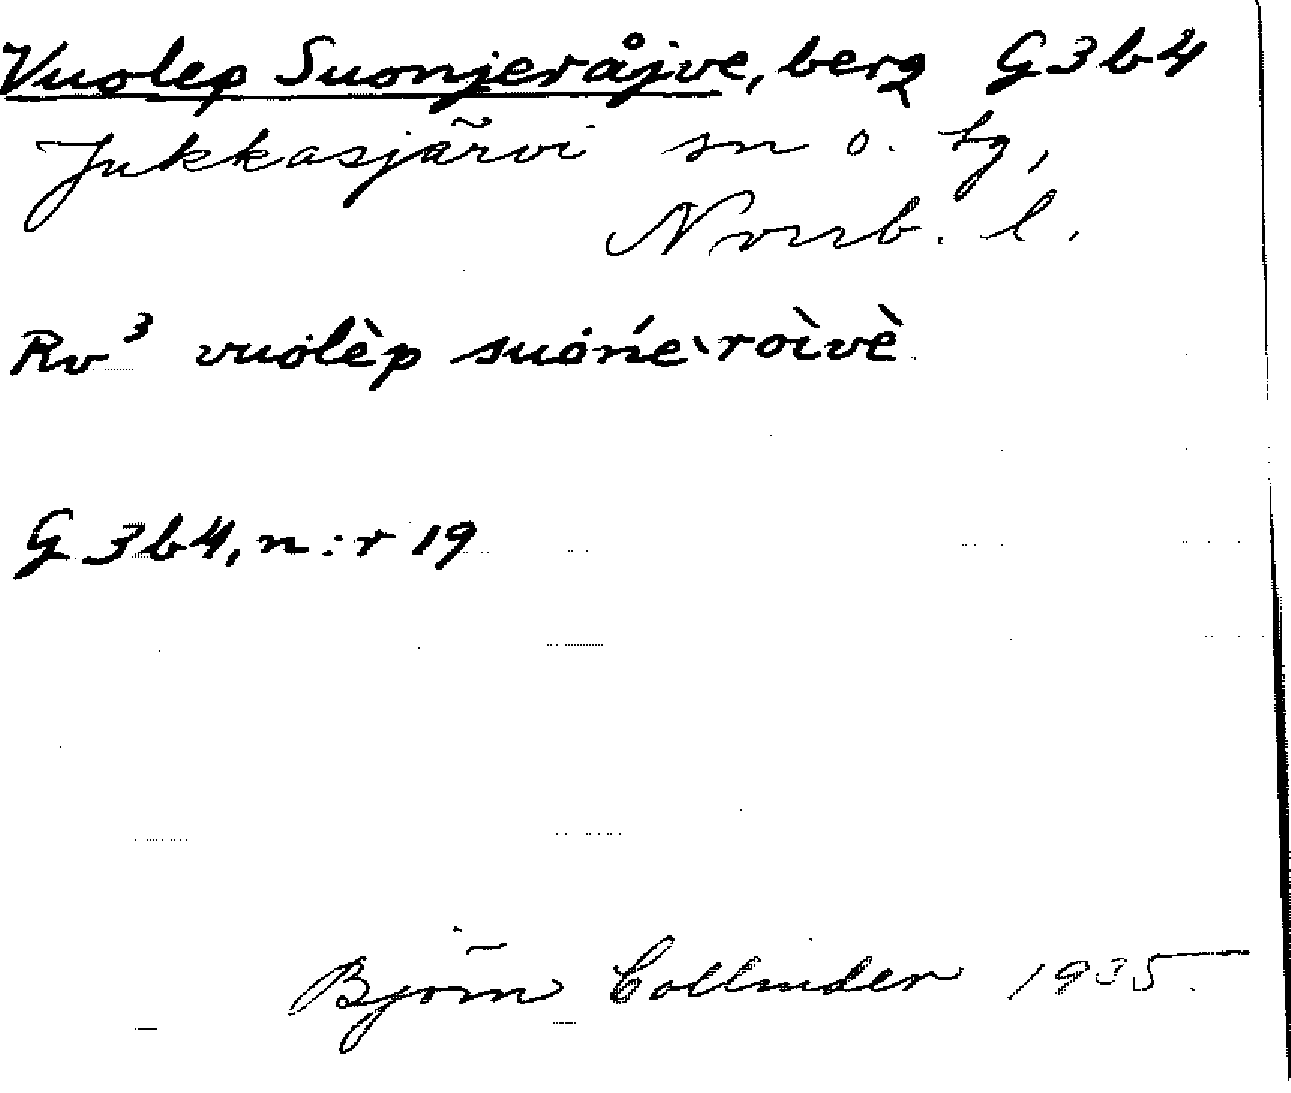 Vuolep Suonjeråjve, berg G3b4
Jukkasjärvi sn o. tg,
Norrb. l.
Rv³ vuolèp suońe`roìvè
G 3b4, n:r 19
Björn Collinder 1935